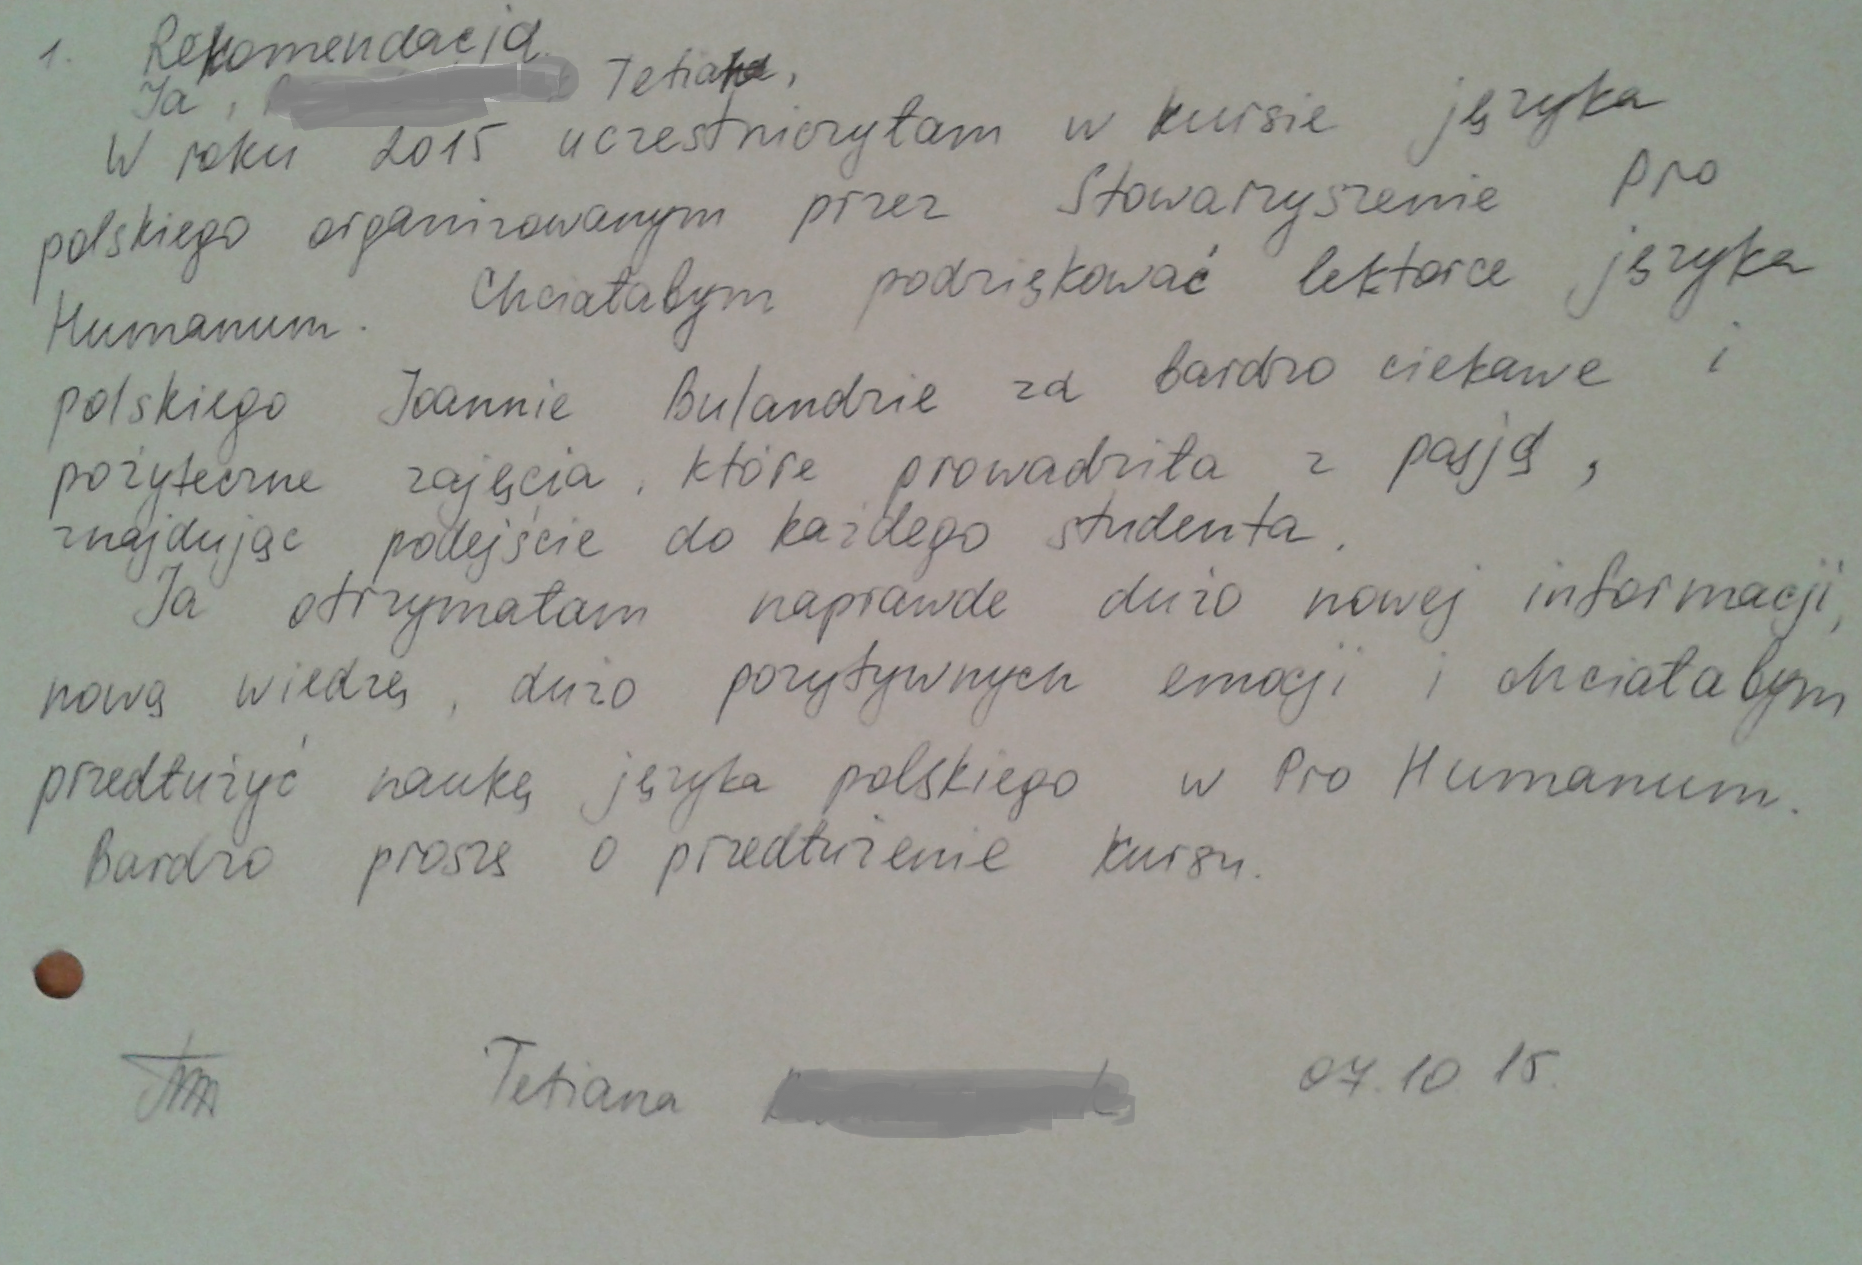 1. Rekomendacja
Ja, Tetiana,
W roku 2015 uczestniczyłam w kursie języka
polskiego organizowanym przez Stowarzyszenie Pro
Humanum. Chciałabym podziękować lektorce języka
polskiego Joannie Bulandzie za bardzo ciekawe i
pożyteczne zajęcia, które prowadziła z pasją,
znajdując podejście do każdego studenta.
Ja otrzymałam naprawde dużo nowej informacji,
nową wiedzę, dużo pozytywnych emocji i chciałabym
przedłużyć naukę języka polskiego w Pro Humanum.
Bardzo proszę o przedłużenie kursu.
Tetiana 07.10 15.